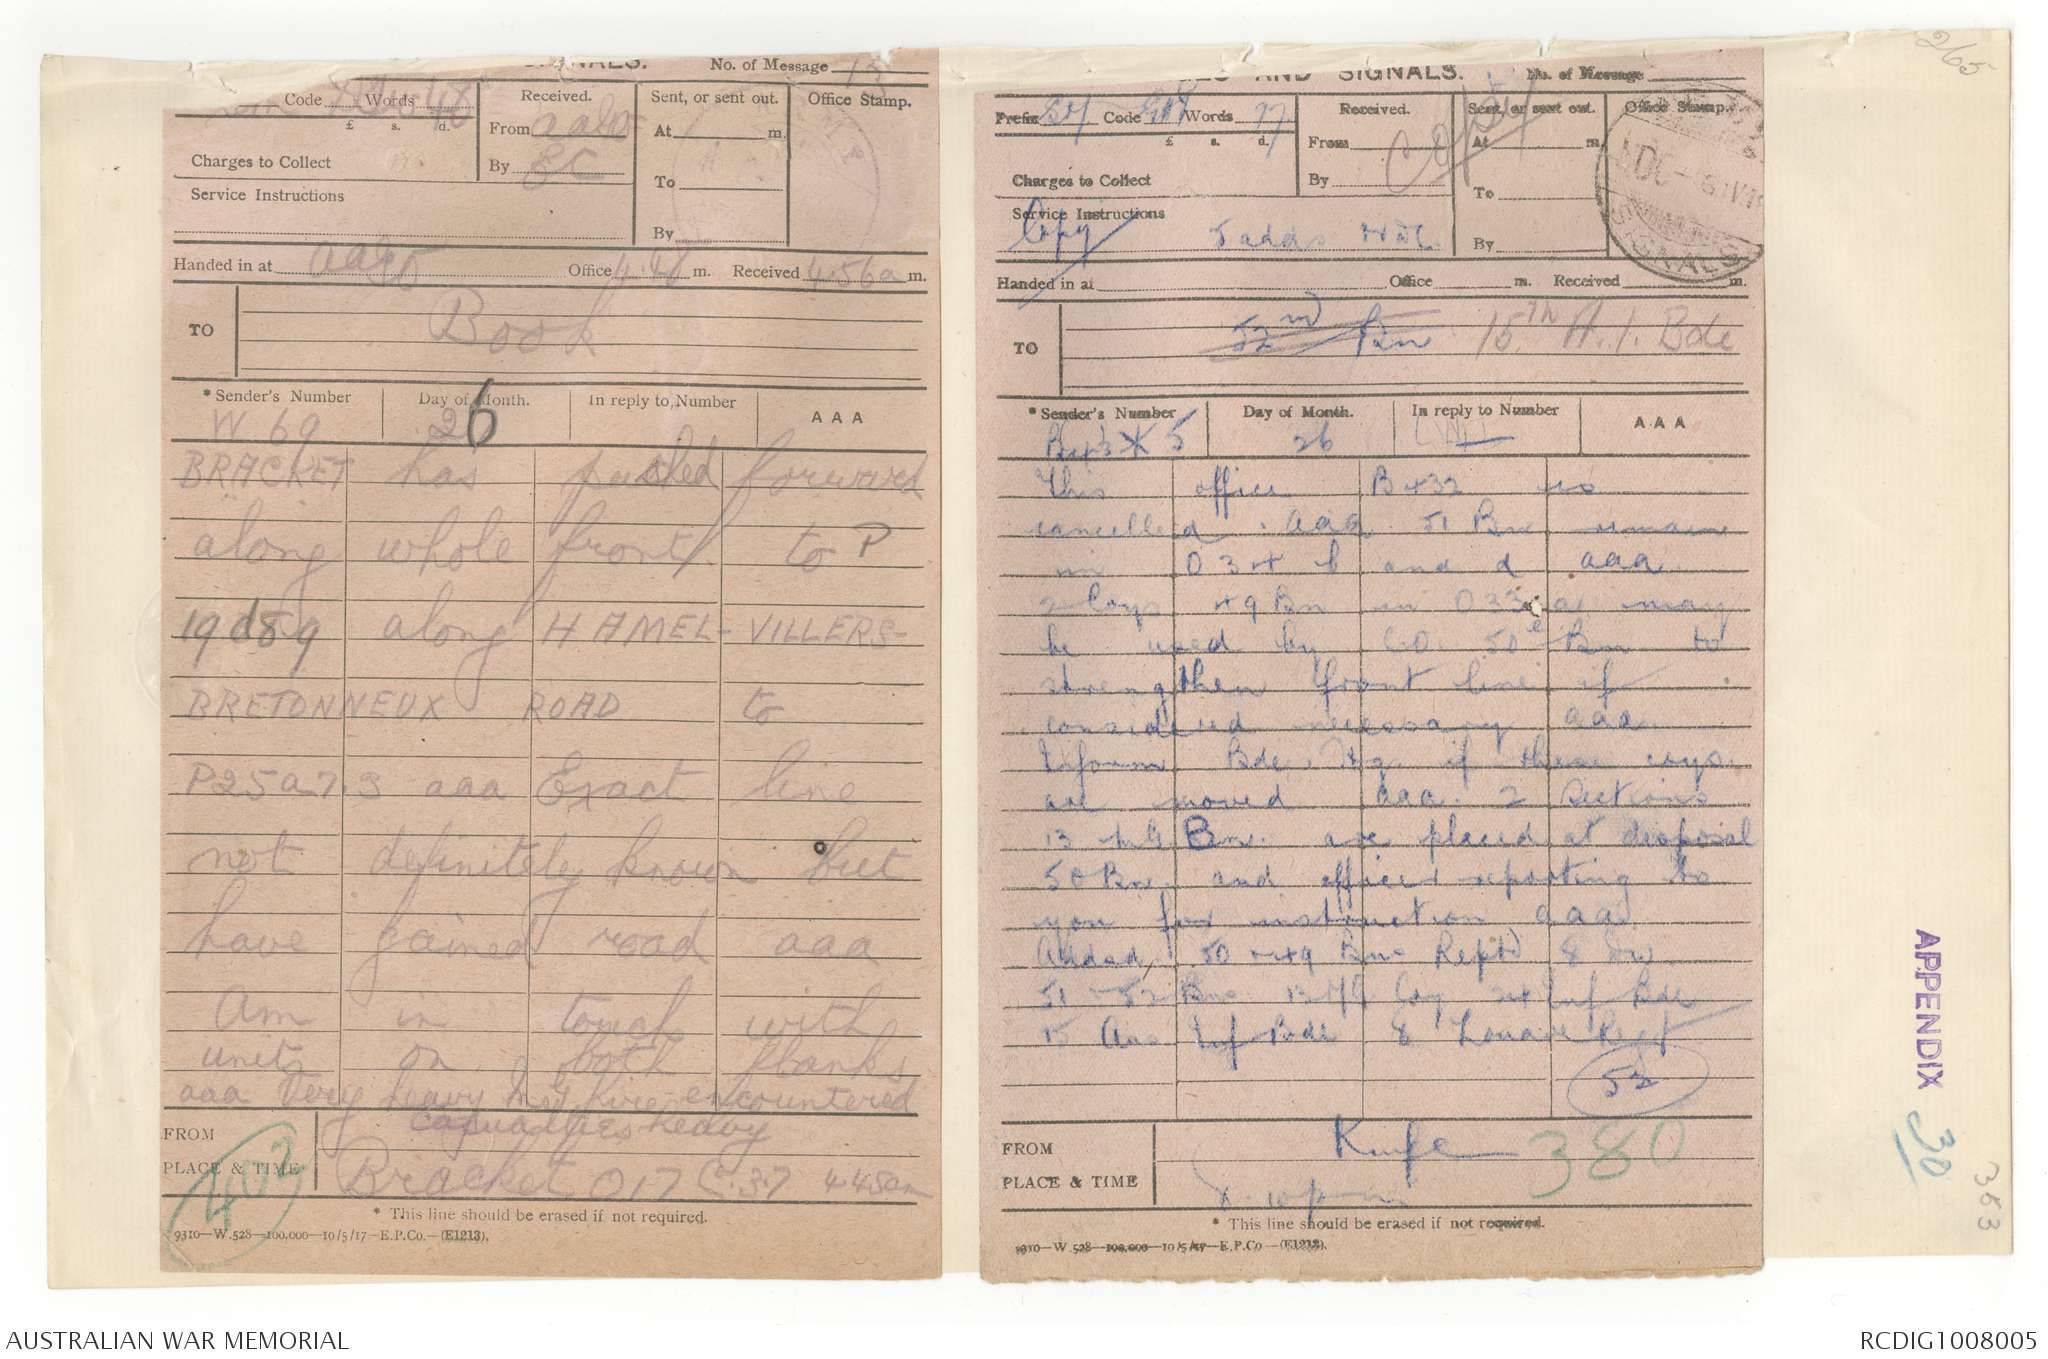 SIGNALS. No. of Message 13
Code Words 48
£ s. d.
Charges to Collect
Service Instructions
Received.
From
By
Sent, or sent out.
At m.
To
By
Office Stamp.
Handed in at Office 4.48 m. Received 4.56 a m.
TO Book
* Sender's Number Day of Month. In reply to Number AAA
W 69 26
BRACKET has pushed forward
along whole front to P
19 d 8 9 along HAMEL-VILLERS-
BRETONNEUX ROAD to
P25a7.3 aaa Exact line
not definitely known but
have gained road aaa
Am in touch with
units on both flanks
aaa Very heavy M.G fire encountered
casualties heavy
FROM
PLACE & TIME Bracket O17 C.3.7 4.45am
402
* This line should be erased if not required.
9310—W.528—100,000—10/5/17—E.P.Co.—(E1213).
AND SIGNALS. No. of Message
Prefix Code Words 97
£ s. d.
Charges to Collect
Service Instructions
Copy 5 adds HDC
Received.
From
By
Sent, or sent out.
At m.
To
By
Office Stamp.
SIGNALS
Handed in at Office m. Received m.
TO 52nd Bn 15th A.I. Bde
* Sender's Number Day of Month. In reply to Number AAA
5 26
This office B432 is
cancelled aaa 51 Bn remain
in O 34 b and d aaa
2 Coys 49 Bn in O33 a may
be used by C.O. 50 Bn to
strengthen front line if
considered necessary aaa
Inform Bde Hq. if these coys.
are moved aaa 2 Sections
13 MG Bn. are placed at disposal
50 Bn. and officer reporting to
you for instruction aaa
Added 50 49 Bns Rept'd 8 Div
51 - 52 Bns 13 MG Coy 24 Inf Bde
15 Aus Inf Bde & Zouave Regt
52
FROM
PLACE & TIME
380
* This line should be erased if not required.
9310—W.528—100,000—10/5/17—E.P.Co.—(E1213).
265
APPENDIX 30
353
AUSTRALIAN WAR MEMORIAL
RCDIG1008005